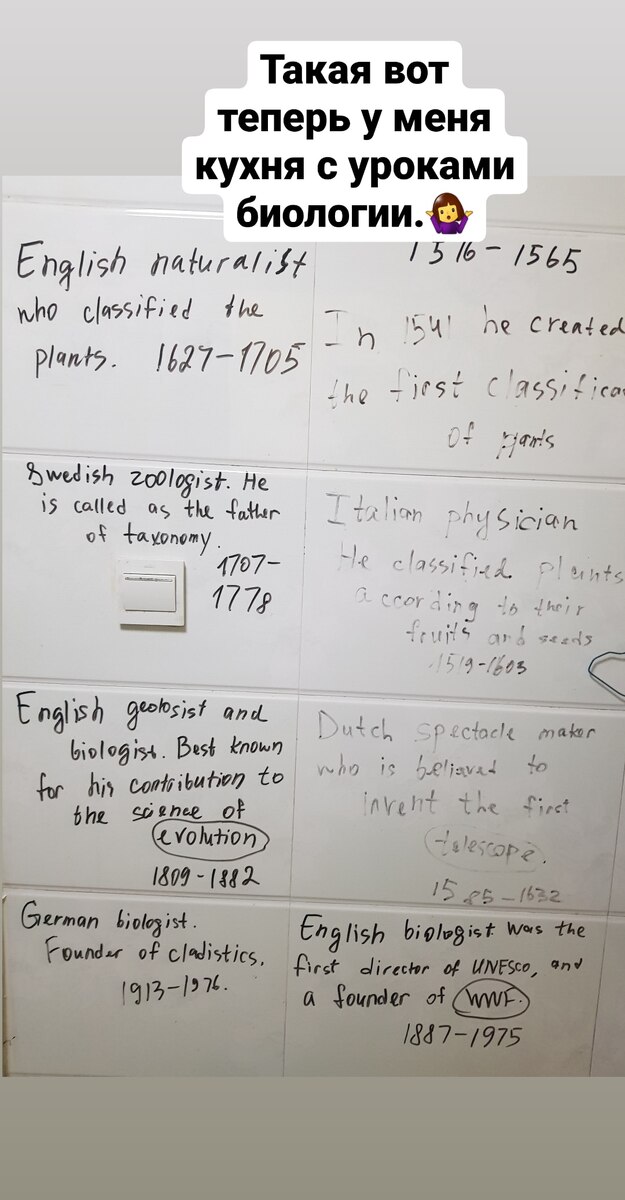 Такая вот
теперь у меня
кухня с уроками
биологии.🤷‍♀️
English naturalist
who classified the
plants. 1627-1705
1516-1565
In 1541 he created
the first classifica
of plants
Swedish zoologist. He
is called as the father
of taxonomy.
1707-
1778
Italian physician
He classified plants
according to their
fruits and seeds
1519-1603
English geolosist and
biologist. Best known
for his contribution to
the science of
evolution
1809-1882
Dutch spectacle maker
who is believed to
invent the first
telescope.
1585-1632
German biologist.
Founder of cladistics.
1913-1976.
English biologist was the
first director of UNESCO, and
a founder of WWF.
1887-1975